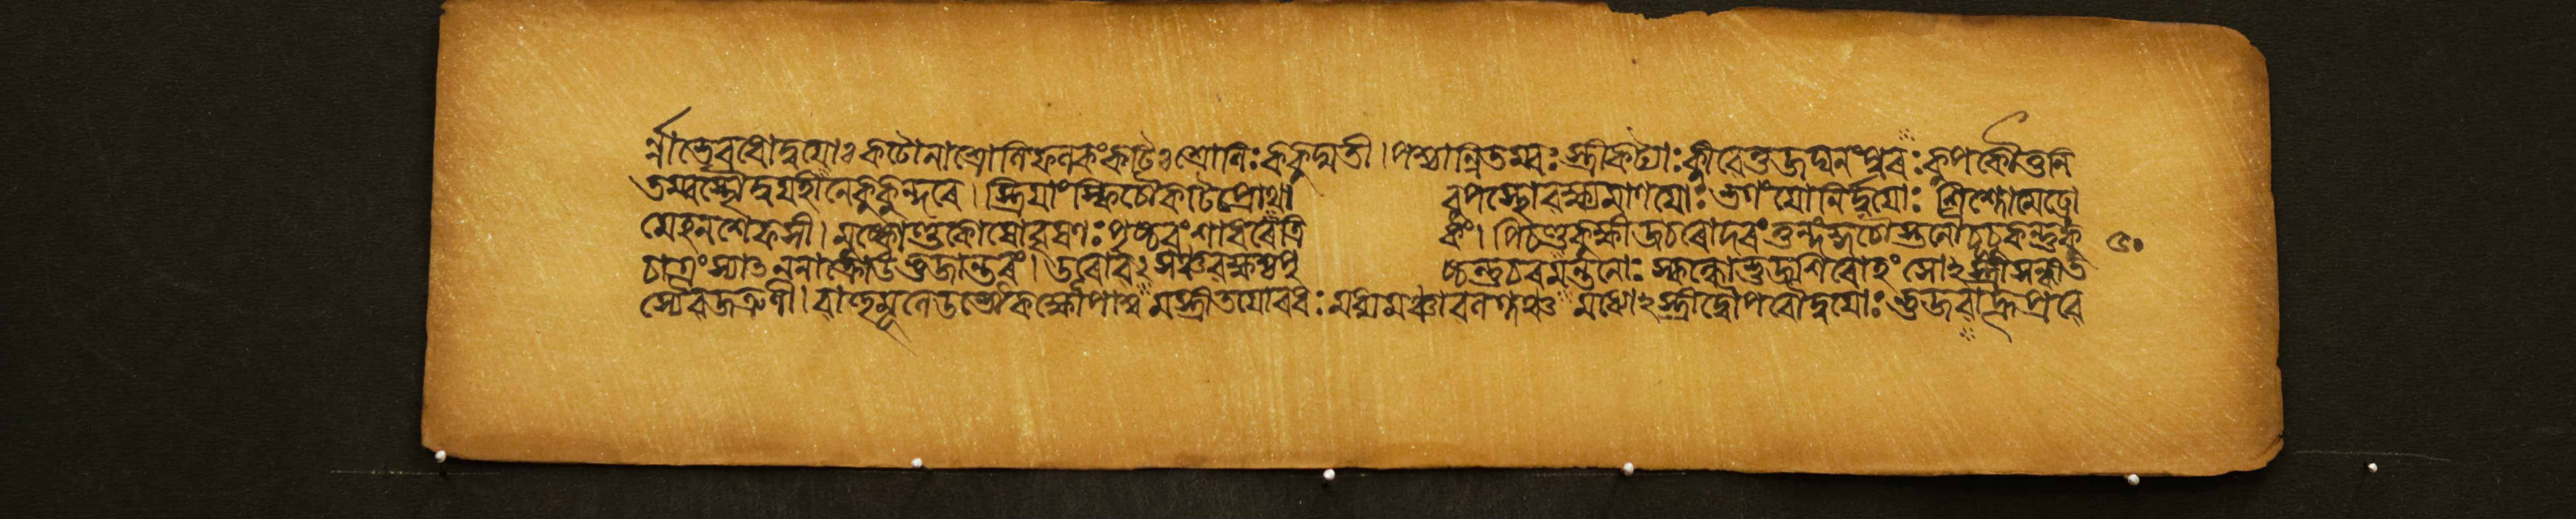 র্ন্নাভেৰধোদ্বযোঃ কটোনাশ্রোণিফলকংকটিঃশ্রোণিঃককুদ্মতী। পশ্চান্নিতম্বঃস্ত্রীকট্যাঃক্লীবেতুজঘনংপুৰঃকূপকৌতুনি
তম্বস্থৌদ্বযহীনেকুকুন্দৰে। স্ত্রিযাংস্ফিচৌকটিপ্রোথা বুপস্থোবক্ষ্যমাণযোঃ ভগংযোনির্দ্বযোঃ শিশ্নোমেঢ্রো
মেহনশেফসী। মুষ্কোণ্ডকোষোবৃষণঃপৃষ্ঠবংশাধৰেত্রি কং। পিচণ্ডকুক্ষীজঠৰোদৰংতুন্দংস্তনৌকুচৌচূচুকন্তুকু ৫০
চাগ্রংস্যান্ননাক্রোডংভুজান্তৰং। উৰোবৎসঞ্চবক্ষশ্চপৃ ষ্ঠন্তুচৰমন্তনোঃ স্কন্ধোভুজশিৰোংসোঽস্ত্রীসন্ধীত
স্যৈবজত্রুণী। বাহুমূলেউভেকক্ষৌপার্শ্বমস্ত্রীতযোৰধঃ মধ্যমঞ্চাবলগ্নঞ্চ মধ্যোঽস্ত্রীদ্বৌপৰৌদ্বযোঃ ভুজবাহূপ্রবে